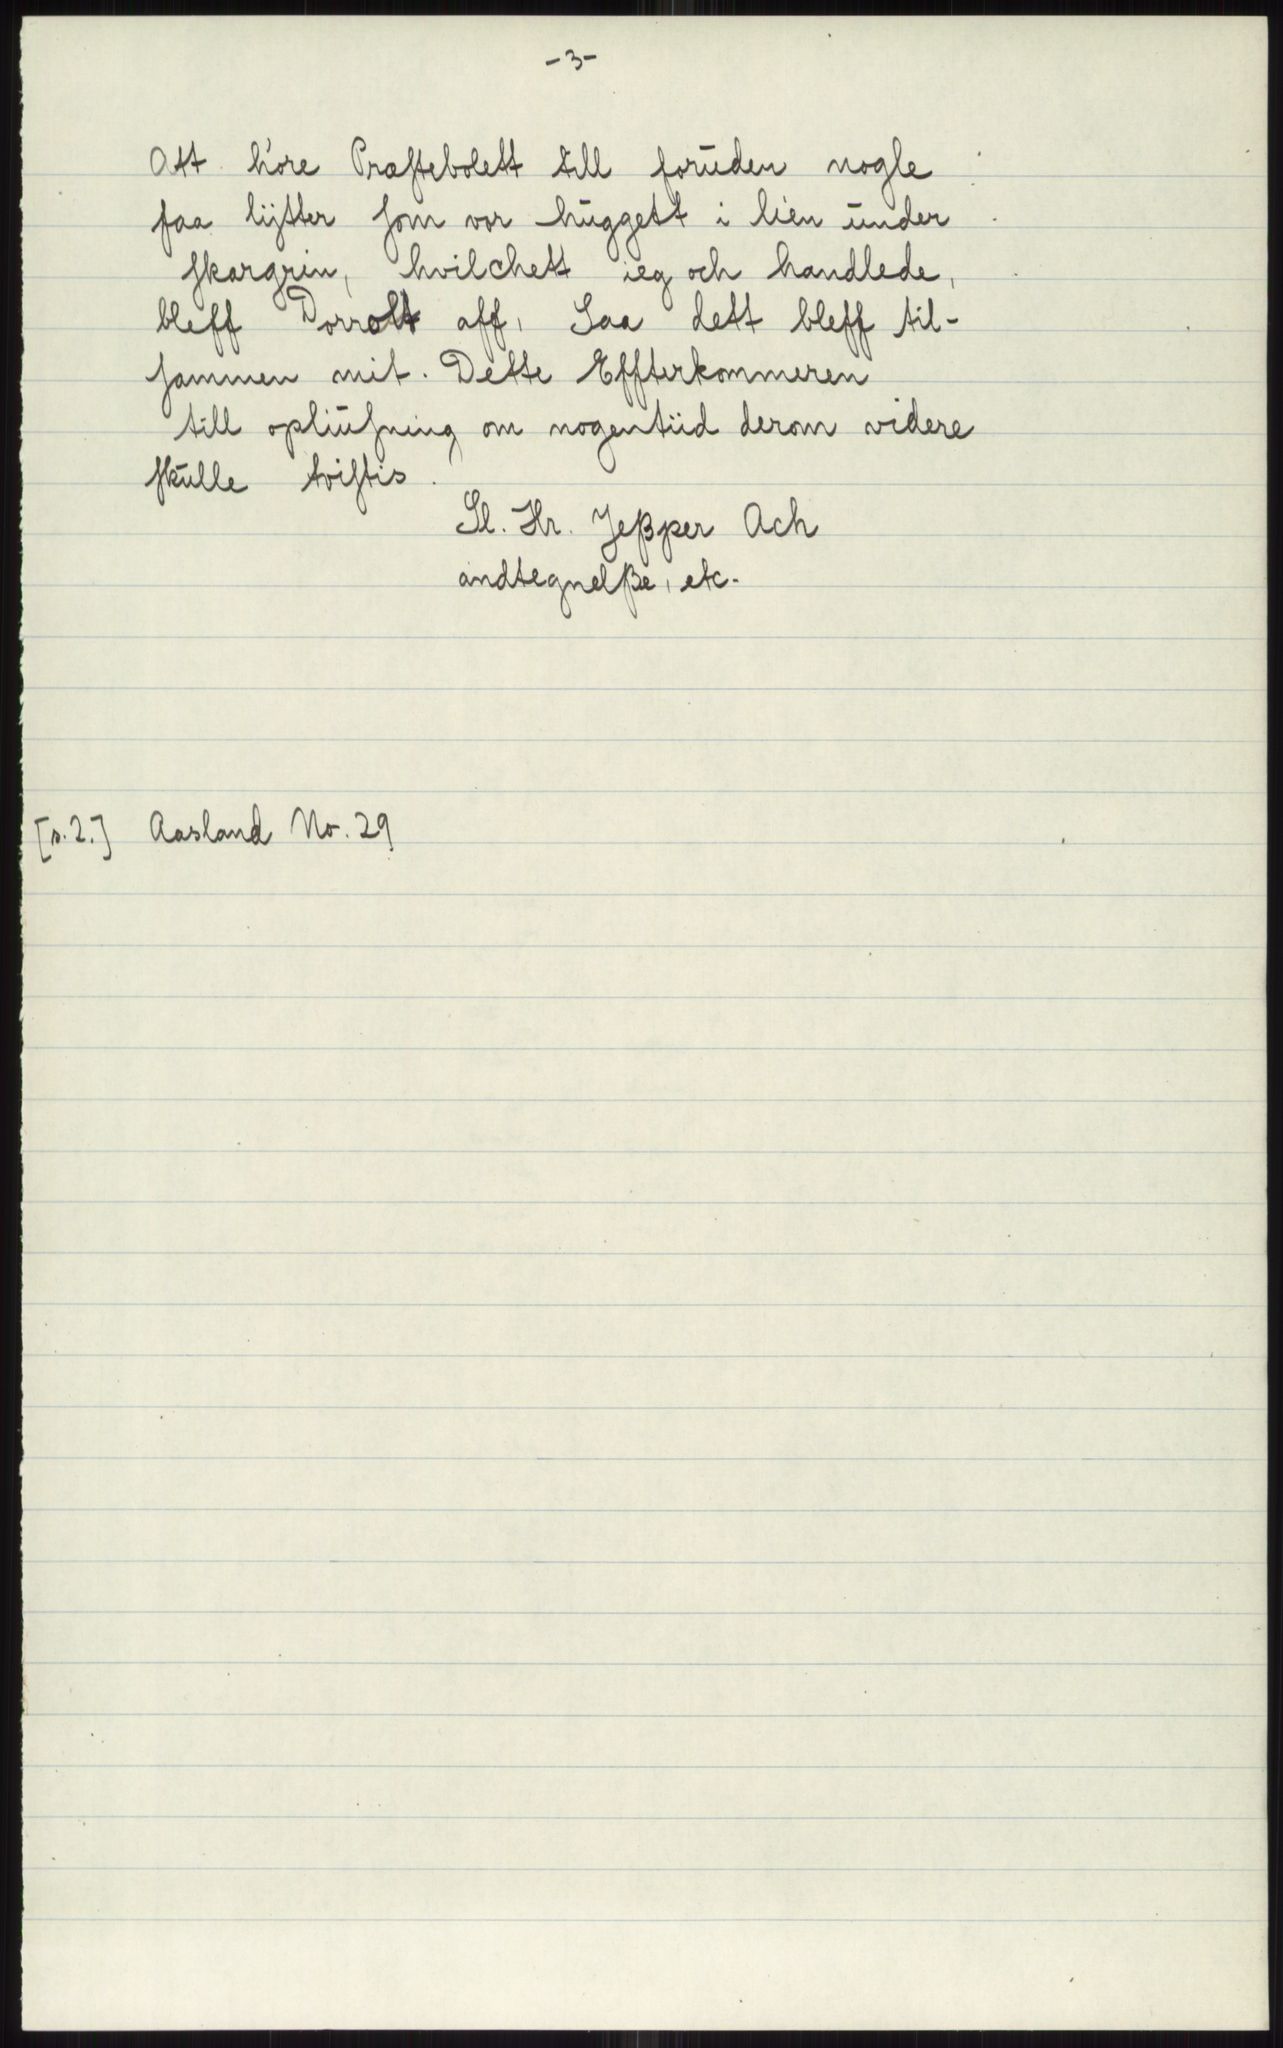 -3-
Att høre Præstebolett till foruden nogle
faa lÿtter som vor huggett i lien under
skargrin, hvilchett ieg och handlede,
bleff Dorrott aff, Saa dett bleff til-
sammen mit. Dette Effterkommeren
till opliusning om nogentiid derom videre
skulle tvistis.
Sl. Hr. Jeßper Ach
andtegnelße, etc.
[s.2.] Aasland No. 29